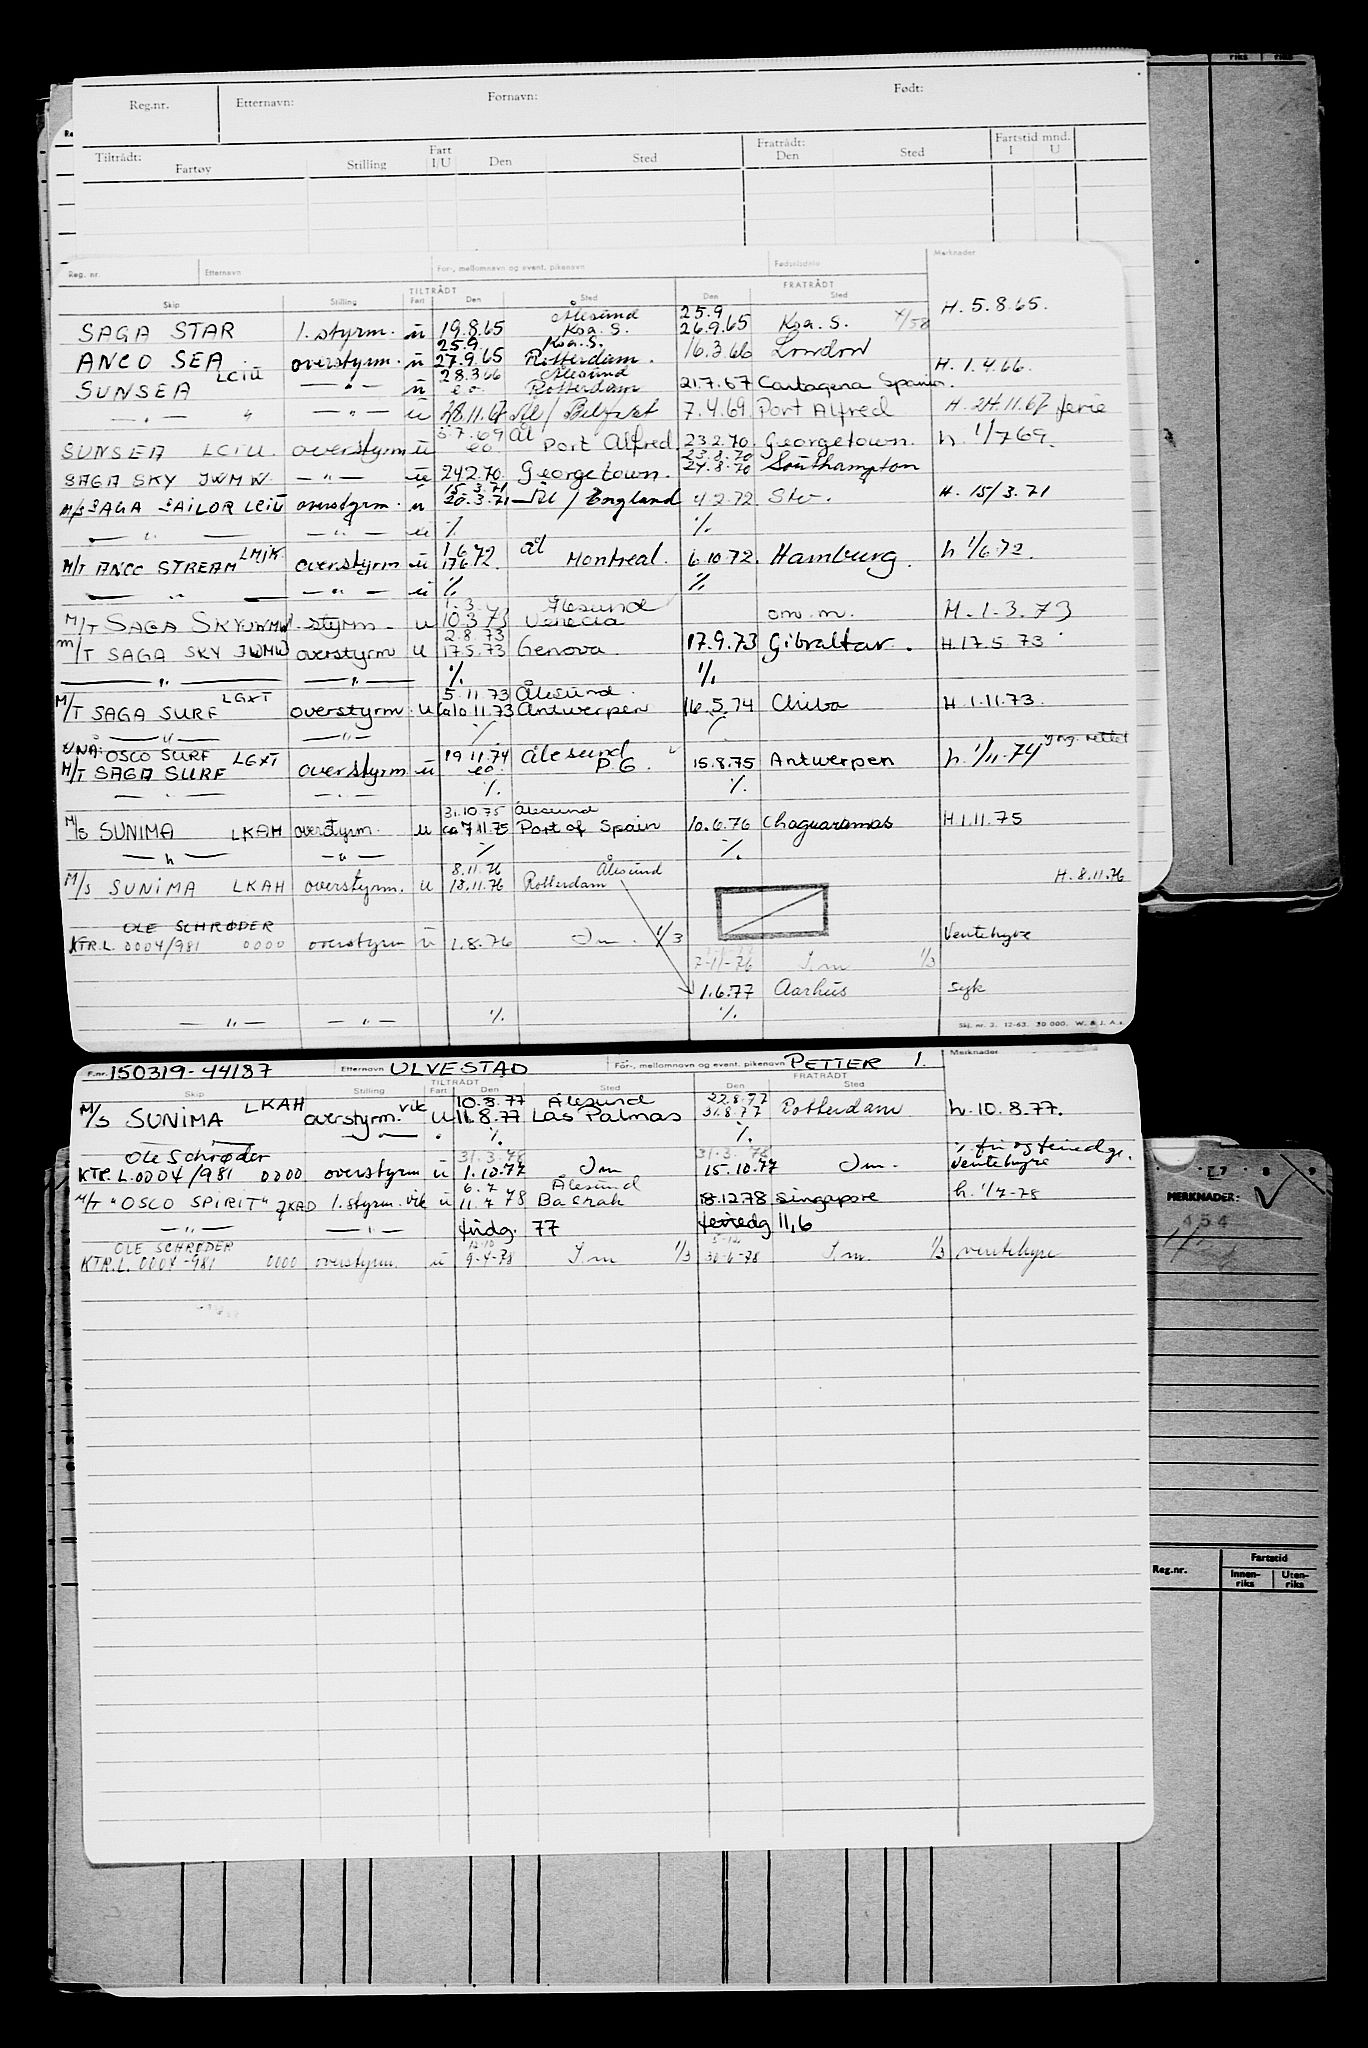 Reg.nr. Etternavn: Fornavn: Født:
Tiltrådt: Fratrådt: Fartstid mnd.
Fartøy Stilling Fart I/U Den Sted Den Sted I U
Reg. nr. Etternavn For-, mellomnavn og event. pikenavn Fødselsdato Merknader
TILTRÅDT FRATRÅDT
Skip Stilling Fart Den Sted Den Sted
Ålesund 25.9 H. 5.8.65.
SAGA STAR 1. styrm. ü 19.8.65 Koa. S. 26.9.65 Koa. S.
25.9. Koa. S.
ANCO SEA overstyrm. ü 27.9.65 Rotterdam. 16.3.66 London
LCIU 28.3.66 Ålesund H. 1.4.66.
SUNSEA — " — ü Rotterdam 21.7.67 Cartagena Spania.
— " — " — " — ü 28.11.67 Ål / Belfast 7.4.69 Port Alfred H. 24.11.67 ferie
5.7.69 Ål
SUNSEA LCIU. overstyrm ü Port Alfred. 23.2.70. Georgetown. h. 1/7 69.
23.8.70
SAGA SKY JWMW. — " — ü 24.2.70. Georgetown. 24.8.70 Southampton
15.3.71
M/S SAGA SAILOR LCIU overstyrm. ü 20.3.71 Ål / England 4.2.72 Sto. H. 15/3.71
— " — — " — ü ./. ./.
LMJK 1.6.72 Ål
M/T ANCO STREAM overstyrm ü 17.6.72. Montreal. 6.10.72. Hamburg. h 1/6.72.
— " — — " — ü ./. ./.
1.3. Ålesund
M/T SAGA SKY JWMW 1. styrm. u 10.3.73 Venecia om. m. H. 1.3.73
2.8.73
M/T SAGA SKY JWMW overstyrm u 17.5.73 Genova. 17.9.73 Gibraltar. H. 17.5.73
— " — — " — ./. ./.
LGXT 5.11.73 Ålesund.
M/T SAGA SURF overstyrm. u ca 10.11.73 Antwerpen 16.5.74 Chiba H. 1.11.73.
— " — — " — ./. ./.
OSCO SURF LGXT 19.11.74 Ålesund
M/T SAGA SURF overstyrm ü P.G. 15.8.75 Antwerpen h. 1/11.74
— " — — " — ./. ./.
31.10.75 Ålesund
M/S SUNIMA LKAH overstyrm. u ca 7.11.75 Port of Spain 10.6.76 Chaguaramas H. 1.11.75
— " — — " — ./. ./.
8.11.76 Ålesund
M/S SUNIMA LKAH overstyrm. u 13.11.76 Rotterdam H. 8.11.76
OLE SCHRØDER
KTR.L. 0004/981 0000 overstyrm ü 1.8.76 Im. 1/3 Ventehyre
7-11-76 Im 1/3
1.6.77 Aarhus syk
— " — — " — ./. ./.
Skj. nr. 2. 12-63. 30 000. W. & J. A.s
F.nr. 150319-44187 Etternavn ULVESTAD For-, mellomnavn og event. pikenavn PETTER I. Merknader
TILTRÅDT FRATRÅDT
Skip Stilling Fart Den Sted Den Sted
LKAH 10.8.77 Ålesund 22.8.77
M/S SUNIMA overstyrm. vik u 11.8.77 Las Palmas 31.8.77 Rotterdam h. 10.8.77.
— " — ./. ./.
Ole Schrøder 31.3.78 31.3.78
KTR.L. 0004/981 0000 overstyrm ü 1.10.77 Im 15.10.77 Im. Ventehyre
6.7 Ålesund
M/T "OSCO SPIRIT" JKAD 1. styrm. vik ü 11.7.78 Basrah 18.12.78 Singapore h. 1/7-78
— " — — " — fridg. 77 feriedg 11,6
OLE SCHRØDER 12-10
KTR.L. 0004-981 0000 overstyrm. ü 9-4-78 Im 1/3 30-6-78 Im. 1/3 ventehyre
MERKNADER:
454
Reg.nr. Fartstid
Innenriks Utenriks